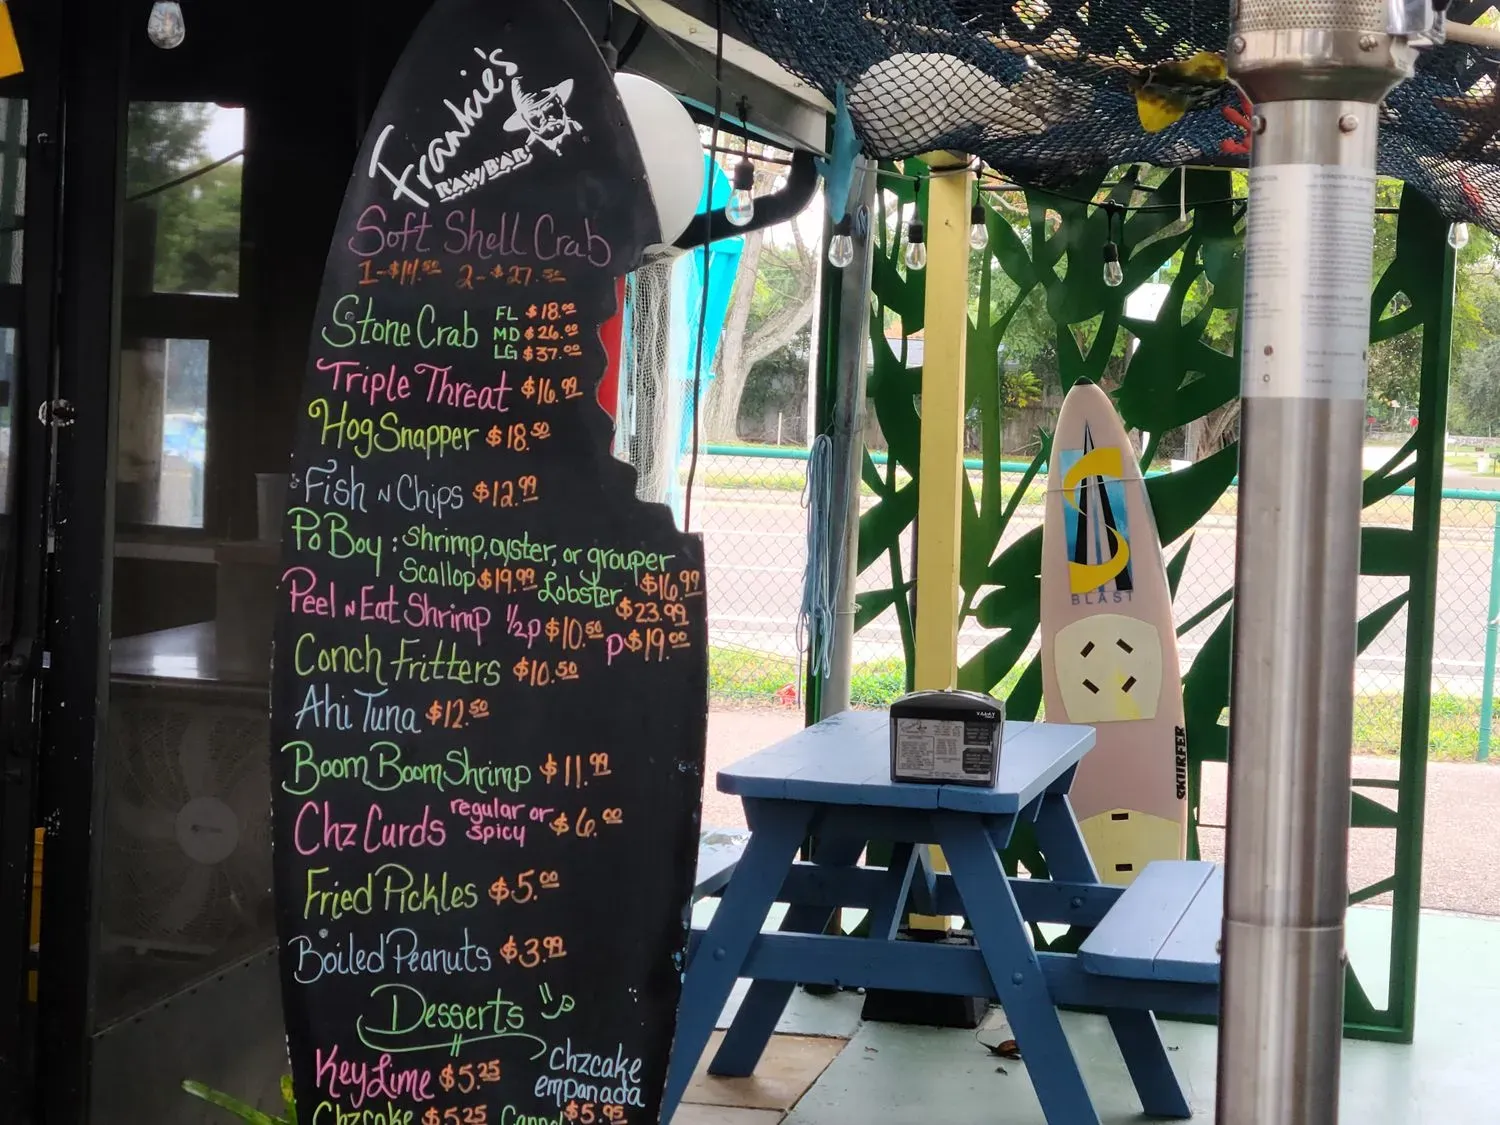 Frankie's
RAW BAR
Soft Shell Crab
1-$14.50 2-$27.50
Stone Crab FL $18.00
MD $26.00
LG $37.00
Triple Threat $16.99
Hog Snapper $18.50
Fish N Chips $12.99
Po Boy: shrimp, oyster, or grouper $16.99
Scallop $19.99 Lobster $23.99
Peel N Eat Shrimp 1/2p $10.50 p $19.00
Conch Fritters $10.50
Ahi Tuna $12.50
Boom Boom Shrimp $11.99
Chz Curds regular or spicy $6.00
Fried Pickles $5.00
Boiled Peanuts $3.99
Desserts
Key Lime $5.25
Chzcake $5.25
chzcake
empanada
$5.95
BLAST
SKURFER